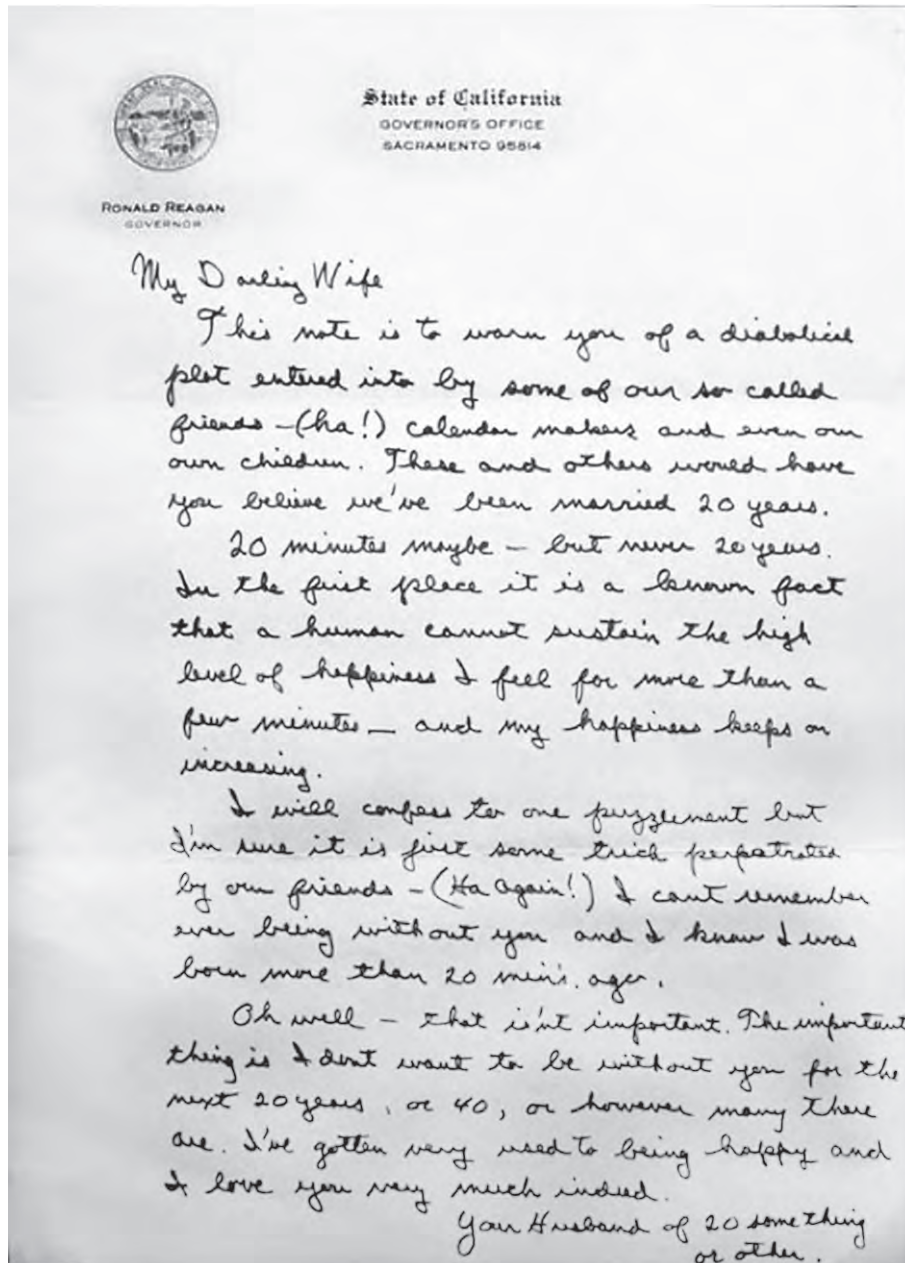 State of California
GOVERNOR'S OFFICE
SACRAMENTO 95814
RONALD REAGAN
GOVERNOR
My Darling Wife
This note is to warn you of a diabolical
plot entered into by some of our so called
friends - (ha!) calendar makers and even our
own children. These and others would have
you believe we've been married 20 years.
20 minutes maybe - but never 20 years.
In the first place it is a known fact
that a human cannot sustain the high
level of happiness I feel for more than a
few minutes - and my happiness keeps on
increasing.
I will confess to one puzzlement but
I'm sure it is just some trick perpetrated
by our friends - (Ha again!) I can't remember
ever being without you and I know I was
born more than 20 min's. ago.
Oh well - that is'nt important. The important
thing is I don't want to be without you for the
next 20 years, or 40, or however many there
are. I've gotten very used to being happy and
I love you very much indeed.
Your Husband of 20 something
or other.